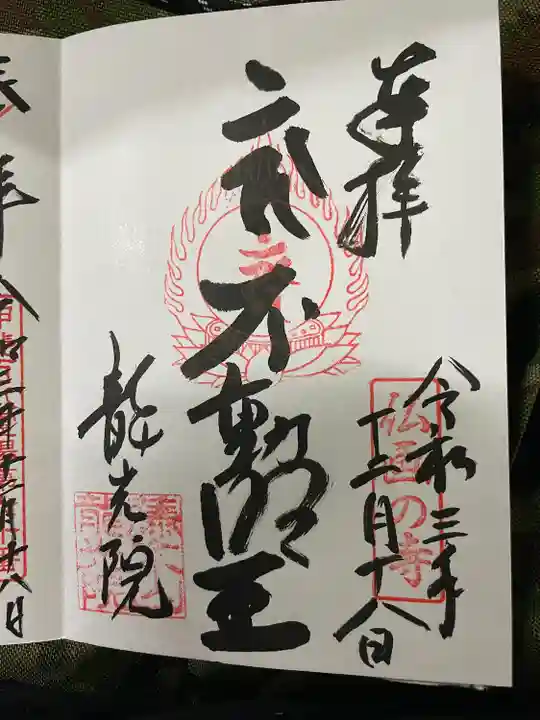 奉拝
令和三年
十二月十八日
仏画の寺
不動明王
龍光院
令和三年十二月十八日